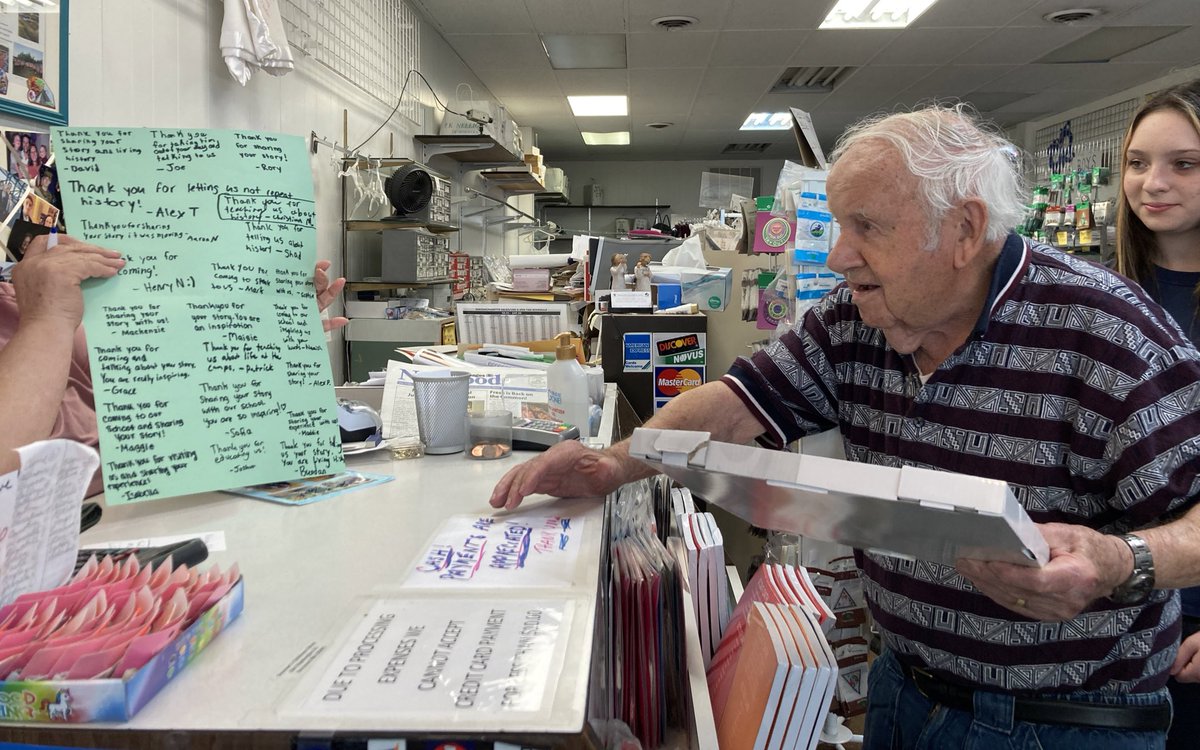 Thank you for
sharing your
story and living
history
-David
Thank you
for taking time
out of your day and
talking to us
-Joe
Thank you
for sharing
your story!
-Rory
Thank you for letting us not repeat
history!
-Aley T
Thank you for
teaching us about
history -
Thank you for sharing
your story it was moving -Aaron N
Thank you for
telling us about
history -Shad
you for
coming!
-Henry N :)
Thank you for
coming to share
with us -Matt
Thank you for
sharing your
story with us!
-Mackenzie
Thank you for
your story. You are
an inspiration
-Maisie
Thank you for
coming and
talking about your story.
You are really inspiring.
-Grace
Thank you for teaching
us about life at the
camps. -Patrick
Thank you
for sharing
your
story! -Alex P.
Thank you for
Sharing your story
with our school
You are so inspiring!
-Sofia
Thank you
for coming to our
school and sharing
your story!
-Maggie
Thank you for
educating us!
-Joshua
Thank you for visiting
us and sharing your
experiences
-Isabella
-Maddie
your story.
You are
-Brendan
AMERICAN
EXPRESS
Cards
Welcome
DISCOVER
NOVUS
MasterCard
CASH!
PAYMENTS ARE
APPRECIATED!
THANK YOU
DUE TO PROCESSING
EXPENSES WE
CANNOT ACCEPT
CREDIT CARD PAYMENT
FOR LESS THAN $20.00